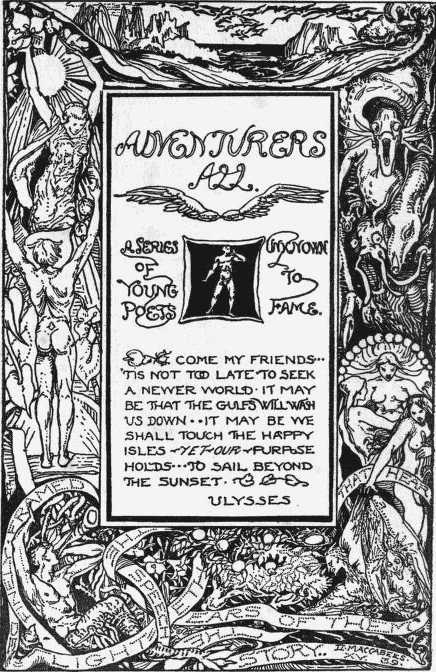 ADVENTURERS
ALL.
A SERIES
OF
YOUNG
POETS
UNKNOWN
TO
FAME.
COME MY FRIENDS...
'TIS NOT TOO LATE TO SEEK
A NEWER WORLD · IT MAY
BE THAT THE GULFS WILL WASH
US DOWN · · IT MAY BE WE
SHALL TOUCH THE HAPPY
ISLES - YET OUR - PURPOSE
HOLDS ··· TO SAIL BEYOND
THE SUNSET.
ULYSSES
EARS OF THE
LIGHT
STORY